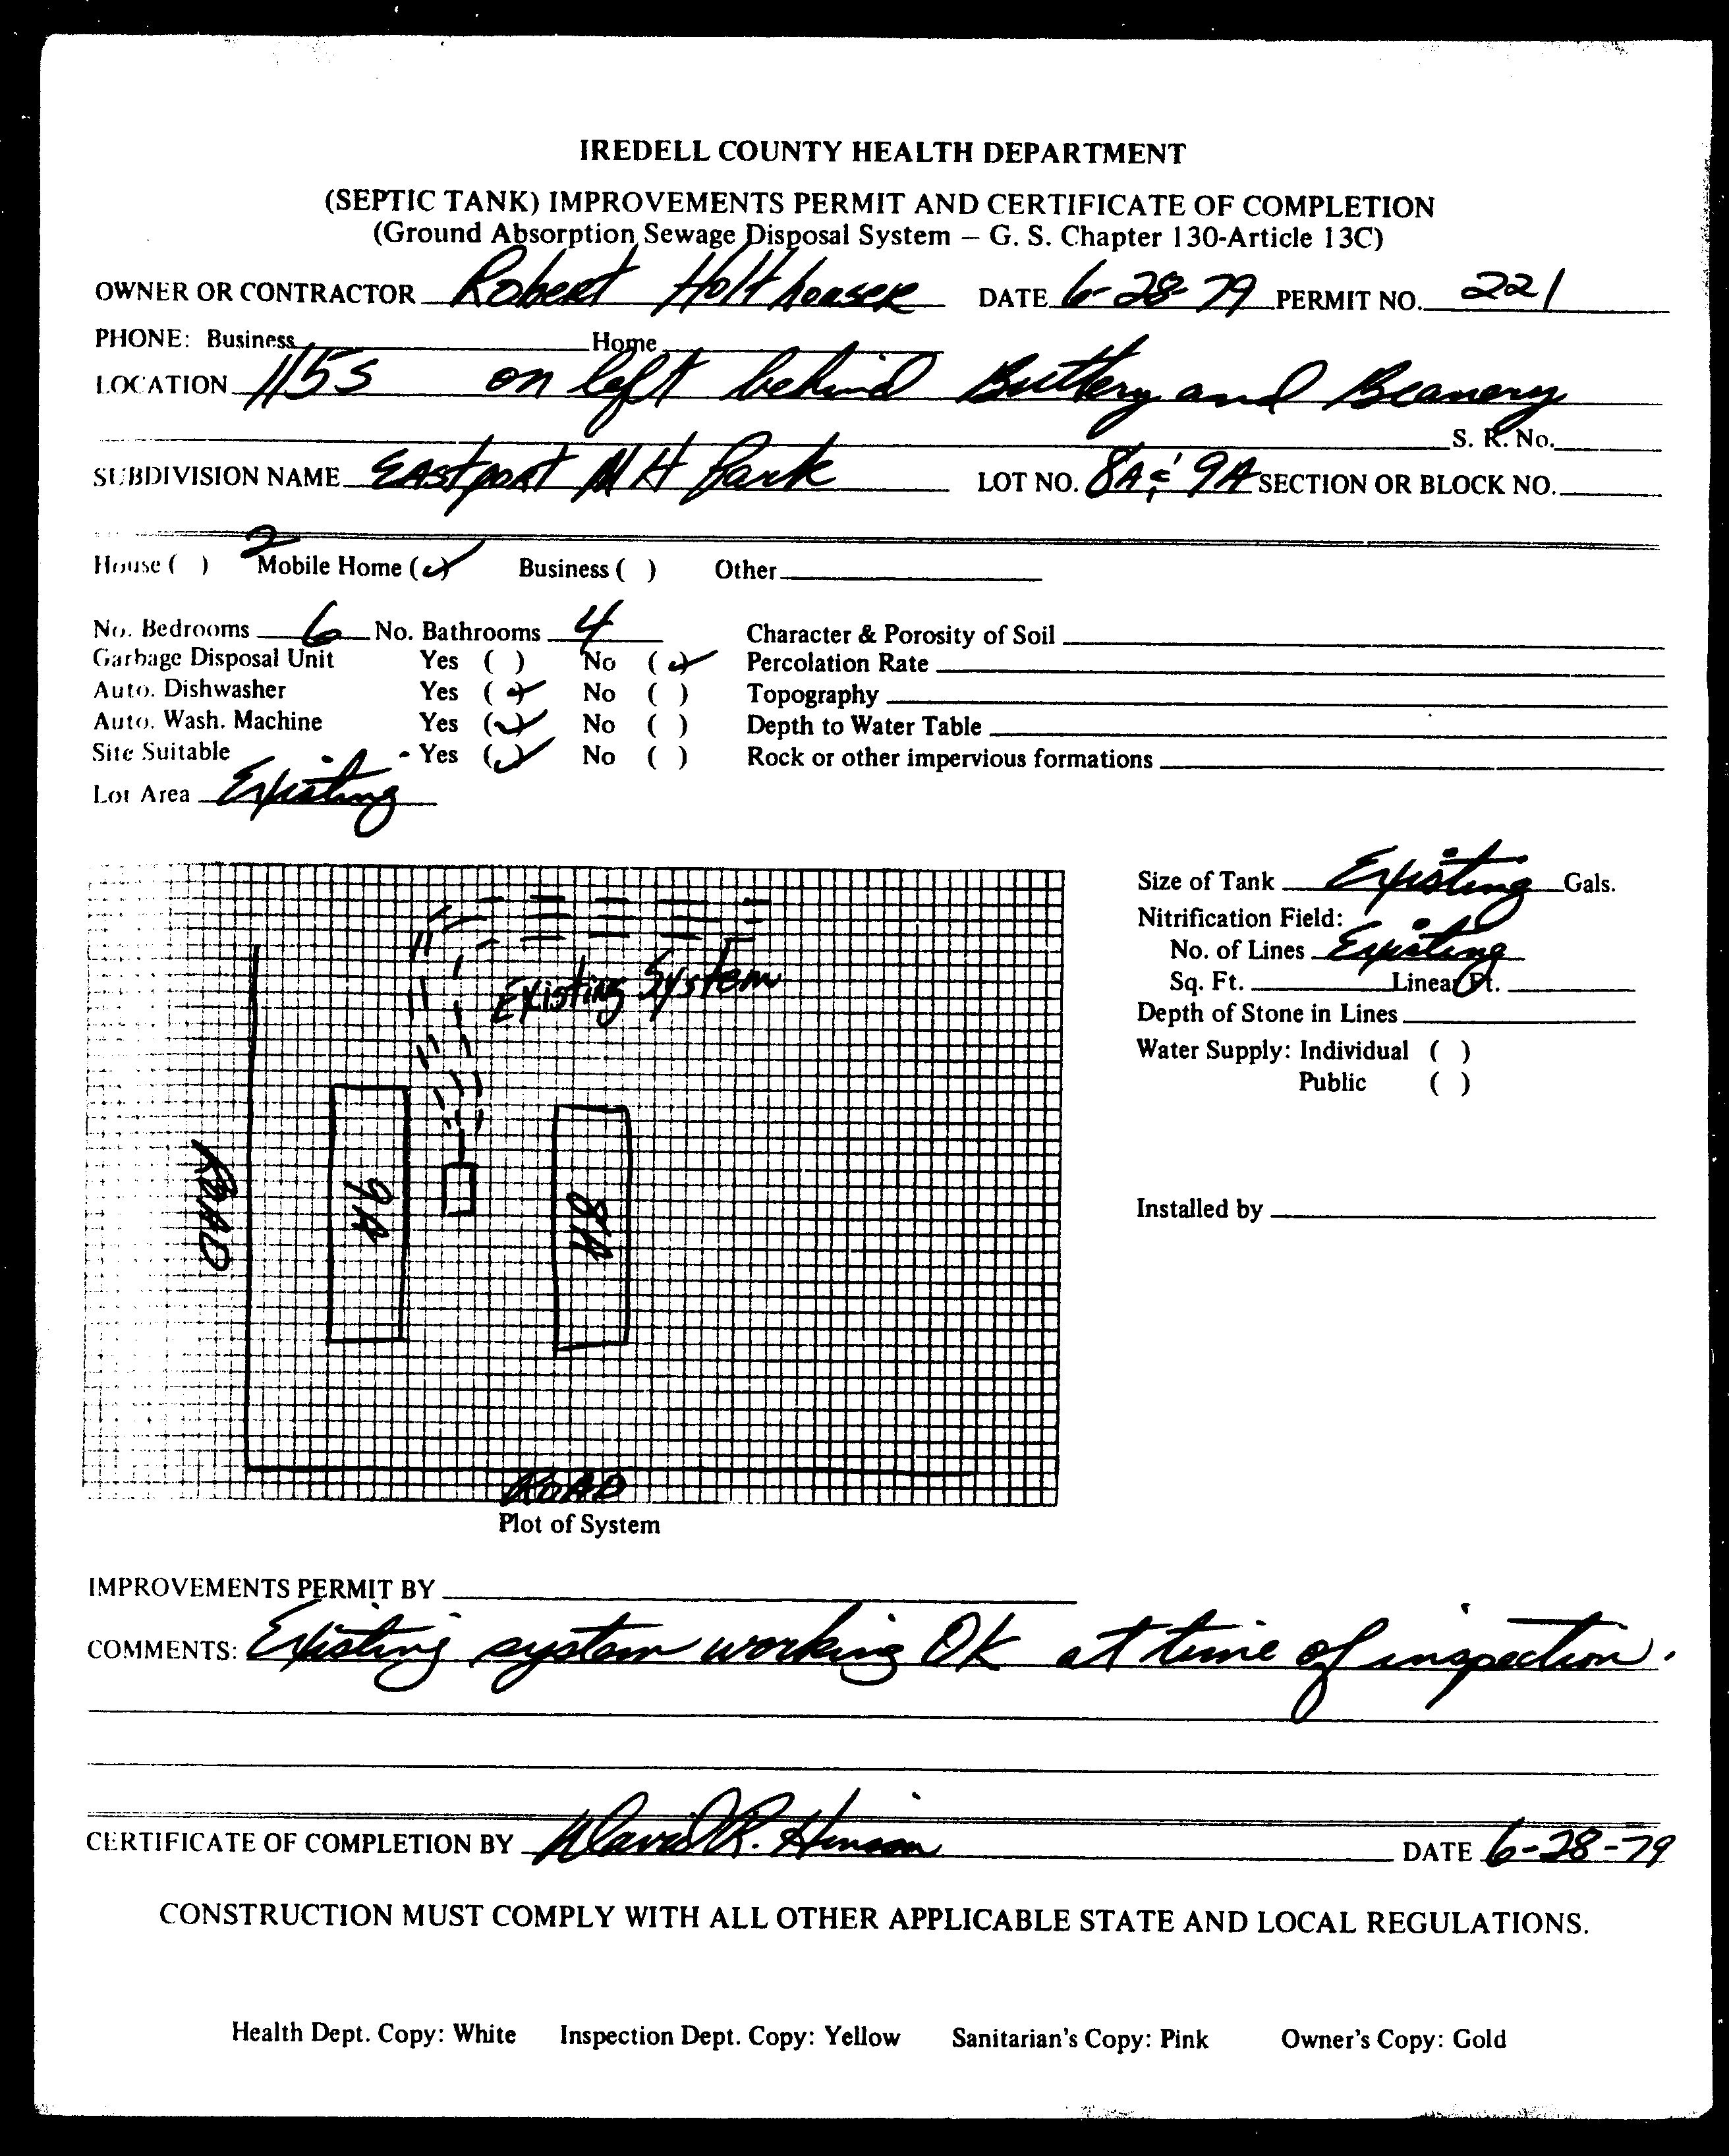 IREDELL COUNTY HEALTH DEPARTMENT
(SEPTIC TANK) IMPROVEMENTS PERMIT AND CERTIFICATE OF COMPLETION
(Ground Absorption Sewage Disposal System – G. S. Chapter 130-Article 13C)
OWNER OR CONTRACTOR Robert Holthouser DATE 6-28-79 PERMIT NO. 221
PHONE: Business Home
LOCATION 115S on left behind Buttery and Beanery
S. R. No.
SUBDIVISION NAME Eastport MH Park LOT NO. 8A & 9A SECTION OR BLOCK NO.
House ( ) 2 Mobile Home (✓) Business ( ) Other
No. Bedrooms 6 No. Bathrooms 4 Character & Porosity of Soil
Garbage Disposal Unit Yes ( ) No (✓) Percolation Rate
Auto. Dishwasher Yes (✓) No ( ) Topography
Auto. Wash. Machine Yes (✓) No ( ) Depth to Water Table
Site Suitable - Yes (✓) No ( ) Rock or other impervious formations
Lot Area Existing
Size of Tank Existing Gals.
Nitrification Field:
No. of Lines Existing
Sq. Ft. Linear Ft.
Depth of Stone in Lines
Water Supply: Individual ( )
Public ( )
Installed by
Existing System
ROAD
9A
8A
ROAD
Plot of System
IMPROVEMENTS PERMIT BY
COMMENTS: Existing system working OK at time of inspection.
CERTIFICATE OF COMPLETION BY David R. Hinson DATE 6-28-79
CONSTRUCTION MUST COMPLY WITH ALL OTHER APPLICABLE STATE AND LOCAL REGULATIONS.
Health Dept. Copy: White Inspection Dept. Copy: Yellow Sanitarian's Copy: Pink Owner's Copy: Gold